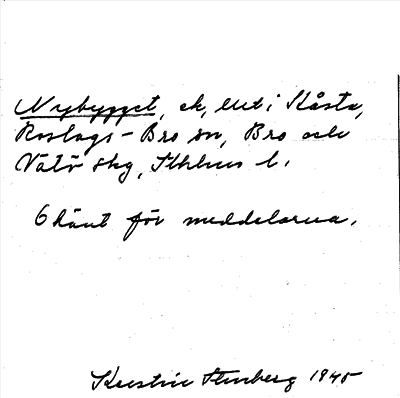 Nybygget, ek, ett i Kåsta,
Roslags-Bro sn, Bro och
Vätö skg, Sthlms l.
Okänt för meddelarna.
Kerstin Stenberg 1945